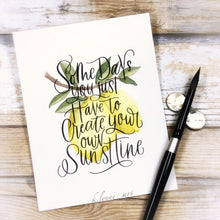 Some Days
you Just
Have to
Create your
own
Sunshine